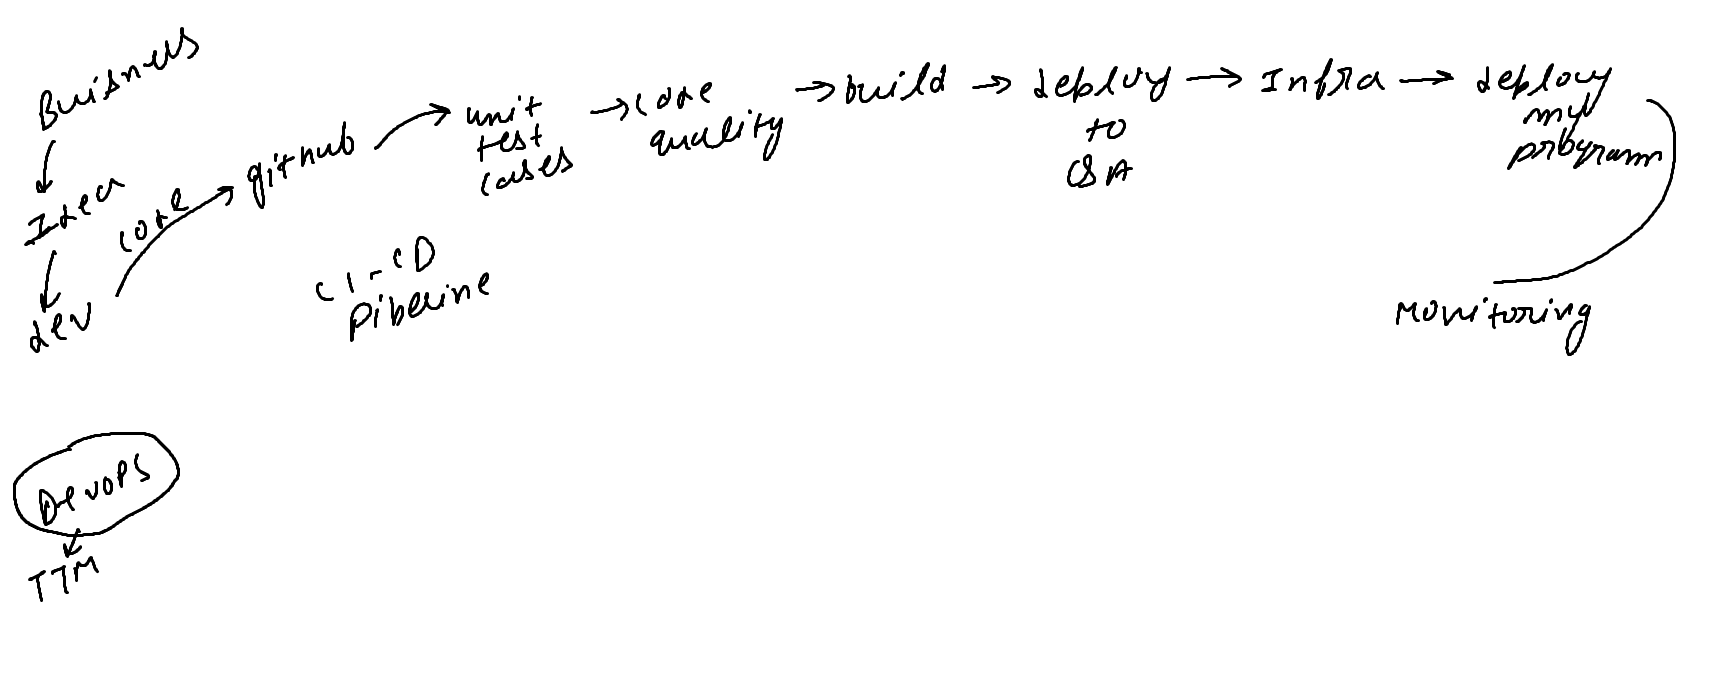 Buisness
Idea
dev
code
github
unit
test
cases
code
quality
build
deploy
to
Infra
deploy
my
program
Monitoring
CI-CD
Pipeline
DevOPS
TTM